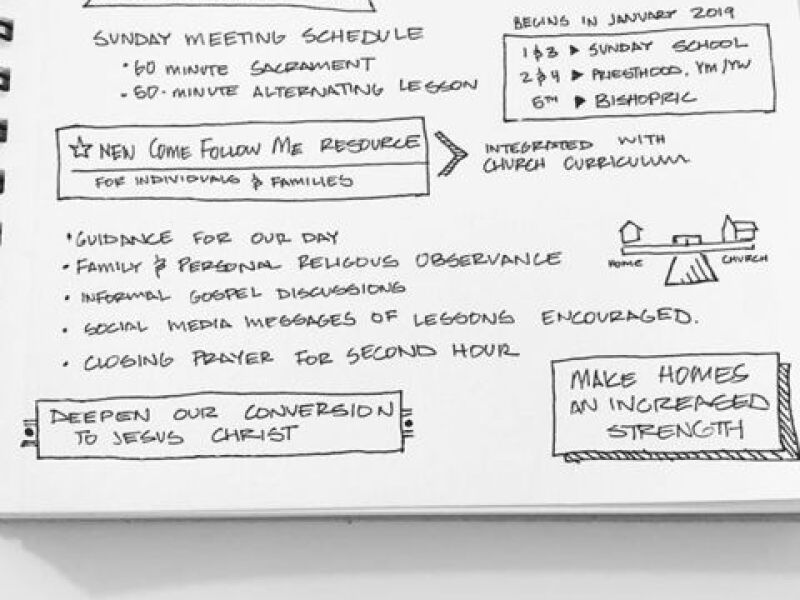 SUNDAY MEETING SCHEDULE
• 60 MINUTE SACRAMENT
• 50-MINUTE ALTERNATING LESSON
BEGINS IN JANUARY 2019
1 & 3 ▶ SUNDAY SCHOOL
2 & 4 ▶ PRIESTHOOD, YM/YW
5TH ▶ BISHOPRIC
☆ NEW COME FOLLOW ME RESOURCE
FOR INDIVIDUALS & FAMILIES
INTEGRATED WITH
CHURCH CURRICULUM
• GUIDANCE FOR OUR DAY
• FAMILY & PERSONAL RELIGOUS OBSERVANCE
• INFORMAL GOSPEL DISCUSSIONS
• SOCIAL MEDIA MESSAGES OF LESSONS ENCOURAGED.
• CLOSING PRAYER FOR SECOND HOUR
HOME
CHURCH
DEEPEN OUR CONVERSION
TO JESUS CHRIST
MAKE HOMES
AN INCREASED
STRENGTH